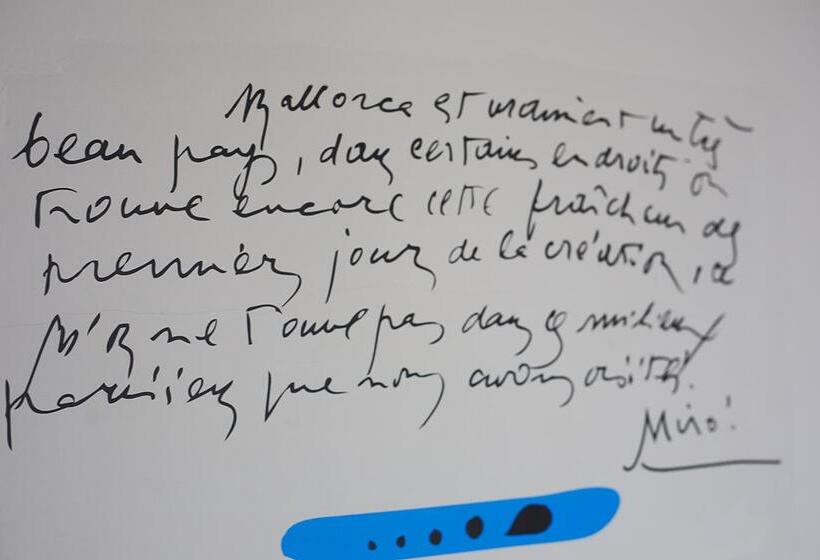 Mallorca est vraiment un très
beau pays, dans certains endroits on
trouve encore cette fraîcheur des
premiers jours de la création,
ne trouve pas dans ces milieux
parisiens que nous avons visités.
Miró.